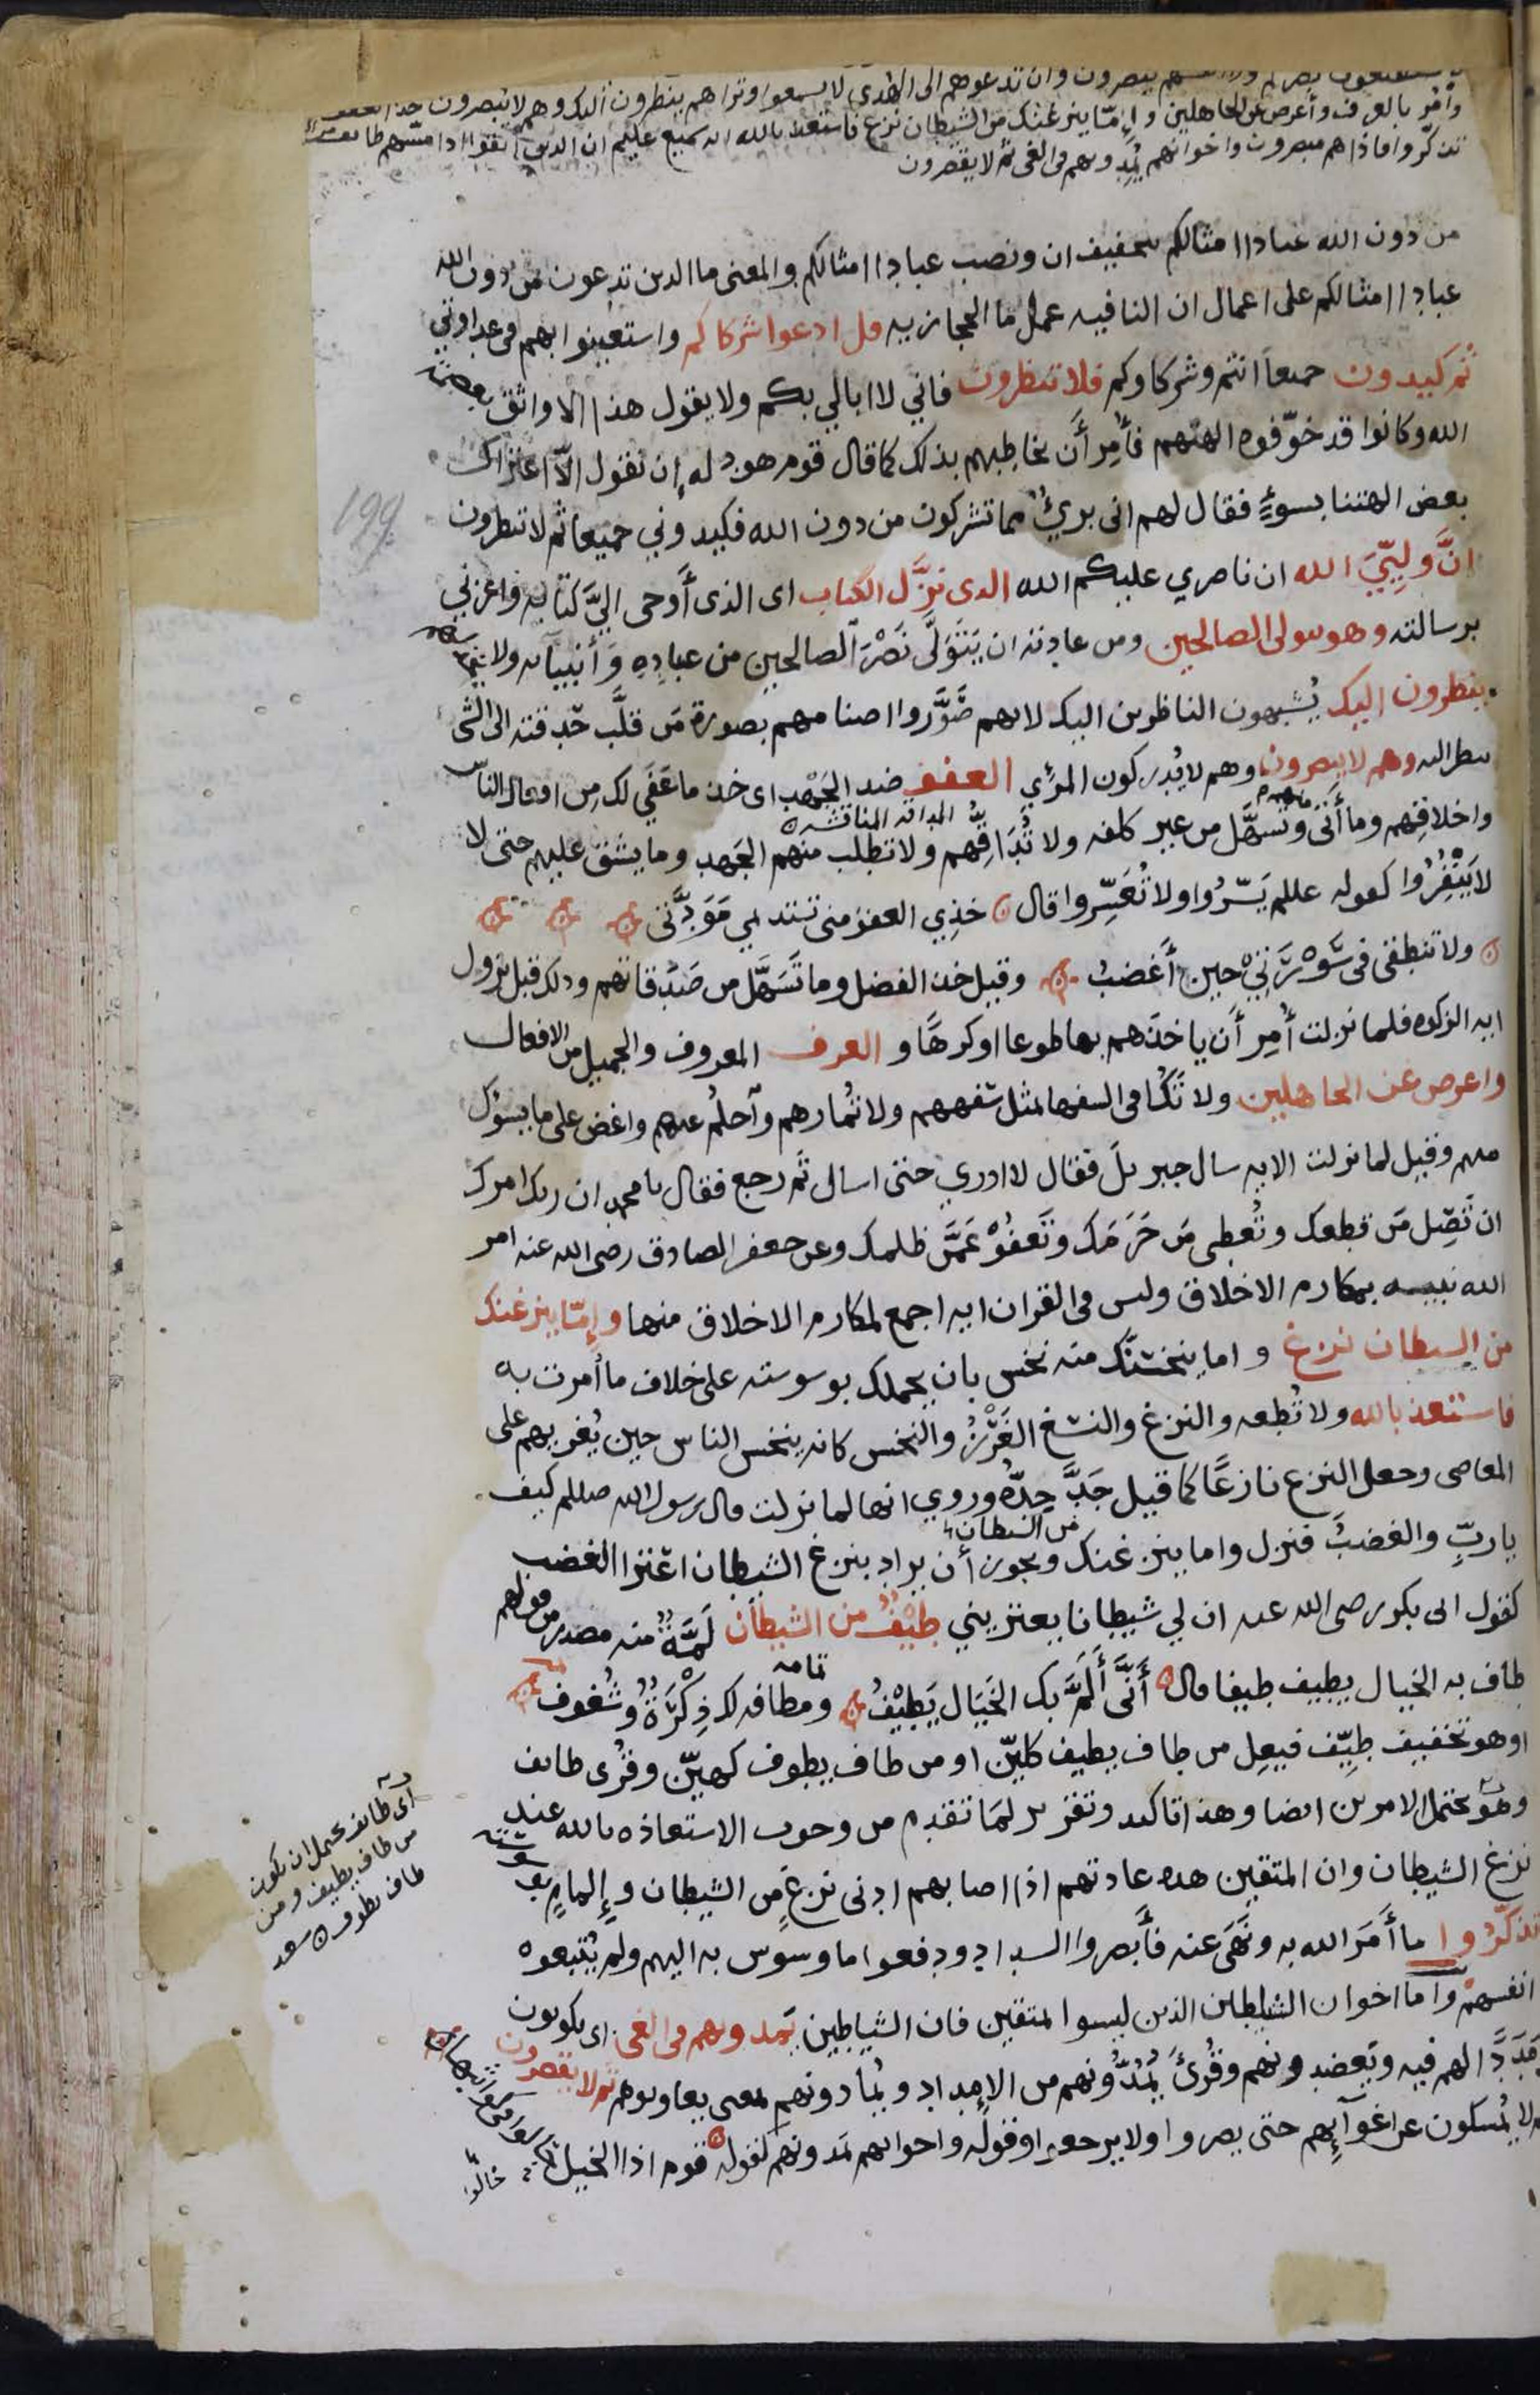 يبصرون وان تدعوهم الى الهدى لا يسمعوا وتراهم ينظرون اليك وهم لا يبصرون خذ العفو
وأمر بالعرف وأعرض عن الجاهلين وإمّا ينزغنك من الشيطان نزغ فاستعذ بالله انه سميع عليم ان الذين اتقوا اذا مسّهم طائف
تذكّروا فاذا هم مبصرون واخوانهم يُمِدونهم في الغى ثم لا يقصرون
من دون الله عبادا امثالكم بتخفيف ان ونصب عبادا امثالكم والمعنى ما الذين تدعون من دون الله
عبادا امثالكم على اعمال ان النافيه عمل ما الحجازيه قل ادعوا شركاكم واستعينوا بهم في عداوتي
ثم كيدون جميعا انتم وشركاوكم فلا تنظرون فاني لا ابالي بكم ولا يقول هذا الا واثق بعصمة
الله وكانوا قد خوّفوه الهتهم فأُمِر أن يخاطبهم بذلك كما قال قوم هود له إن نقول الّا اعتراك
بعض الهتنا بسوءٍ فقال لهم انى بريءٌ مما تشركون من دون الله فكيدوني جميعا ثم لا تنظرون
انَّ ولِيِّيَ الله ان ناصري عليكم الله الذى نزَّل الكتاب اى الذى أَوحى اليَّ كتابه واعزني
برسالته وهو يتولى الصالحين ومن عادته ان يَتَوَلَّى نَصْرَ الصالحين من عبادِهِ وَأنبيآئه ولا يخذلهم
ينظرون اليك يُشبهون الناظرين اليك لانهم صَوَّروا اصنامهم بصورة مَن قلَّب حَدقته الى الشى
ينظر اليه وهم لا يبصرون وهم لا يُدركون المرْئي العفو ضد الجَهْد اى خذ ما عَفَى لك من افعال الناس
واخلاقِهم وما أَتَى منهم وتَسهَّل من غير كلفه ولا تُدَاقّهم المداقه المناقشه ولا تطلب منهم الجَهد وما يشق عليهم حتى لا
لا يَنْفِرُوا كقوله عللم يَسِّرُوا ولا تُعَسِّروا قال خذِي العفو منى تستديمي مَوَدَّتى
ولا تنطقى فى سَوْرَتيْ حين أَغضبُ وقيل خذ الفضل وما تَسَهَّل من صَدقاتهم وذلك قبل نزول
ايه الزكوه فلما نزلت أُمِر أن ياخذهم بها طوعا او كرهًا و العرف المعروف والجميل من الافعال
واعرض عن الجاهلين ولا تُكافى السفها بمثل سَفههم ولا تُمارهم واحلُم عنهم واغض على ما يسؤك
منهم وقيل لما نزلت الايه سال جبريل فقال لا ادري حتى اسال ثم رجع فقال يا محمد ان ربك امرك
ان تَصِل مَن قطعك وتُعطى مَن حَرَمَك وتَعفُوْ عَمَّن ظلمك وعن جعفر الصادق رضى الله عنه امر
الله نبيه بمكارم الاخلاق وليس فى القران ايه اجمع لمكارم الاخلاق منها وإمّا ينزغنك
من الشيطان نزغ واما ينخسنَّك منه نخس بان يحملك بوسوسته على خلاف ما أمرت به
فاستعذ بالله ولا تُطعه والنزغ والنسغ الغَرْزُ والنخس كانه ينخس الناس حين يُغريهم على
المعاصى وجعل النزغ نازغًا كما قيل جَدَّ جِدُّه وروي انها لما نزلت قال رسول الله صللم كيف
ياربِّ والغضبُ فنزل واما ينزغنك من الشيطان ويجوز أن يراد بنزغ الشيطان اعتزا الغضب
كقول ابى بكر رضى الله عنه ان لي شيطانا يعتريني طَيْفٌ من الشيطان لَمَّةٌ منه مصدر من قولهم
طاف به الخيال يطيف طيفا قال أنَّى أَلَمَّ بك الخَيَال يَطِيْفُ تمامه ومطافه لك ذِكْرَةٌ وشُغوف
او هو تخفيف طيِّف فيعِل من طاف يطيف كليّن او من طاف يطوف كهيّن وقُرى طائف
وهو يحتمل الامرين ايضا وهذا تاكيد وتقرير لمَا تقدم من وجوب الاستعاذه بالله عند
نزغ الشيطان وان المتقين هذه عادتهم اذا اصابهم ادنى نزغٍ مِن الشيطان وإلمامٍ بوسوسته
تذكّرُوا ما أَمَرَ الله به ونَهَى عنه فأَبصروا السداد ودفعوا ما وسْوس به اليهم ولم يُتبعوه
انفسهم وأما اخوان الشياطين الذين ليسوا المتقين فان الشياطين يَمدونهم فى الغى اى يكونون
مَدَدًا لهم فيه ويَعضدونهم وقُرئ يُمِدُّونهم من الإمداد ويُمادونهم بمعنى يعاونونهم ثم لا يقصرون
ثم لا يُمسكون عن اغوآئِهم حتى يصروا ولا يرجعوا وقوله واخوانهم يمدونهم كقوله قوم اذا الخيل
اى طائف يحمل ان يكون
من طاف يطيف ومن
طاف يطوف سعد
199